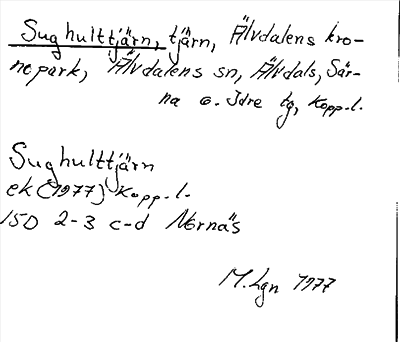 Sughulttjärn, tjärn, Älvdalens kro-
nepark, Älvdalens sn, Älvdals, Sär-
na o. Idre tg, Kopp.l.
Sughulttjärn
ek (1977) Kopp.l.
15D 2-3 c-d Nornäs
M.Lgn 1977